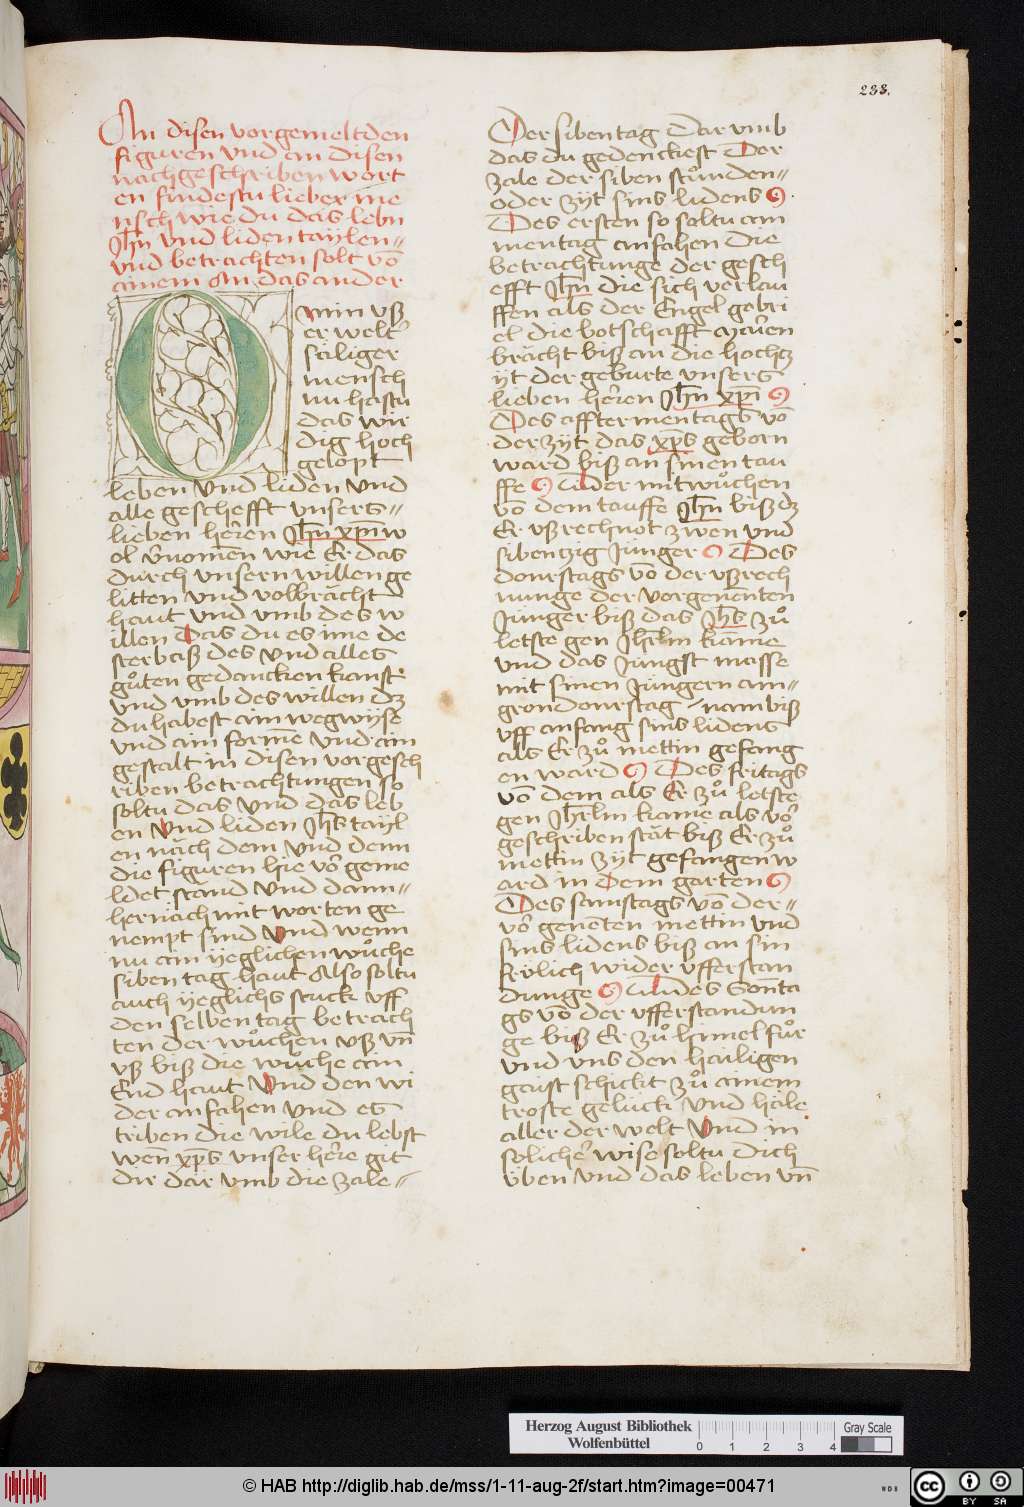 233.
An disen vorgemeltden
figuren vnd an disen
nachgeschriben wort
en findestu lieber me
nsch wie du das lebn
Jhn vnd liden taÿlen=
vnd betrachten solt vō
ainem An das ander
O min vß
er welt
säliger
mensch
nu hastu
das wir
dig hoch
gelopt
leben vnd liden vnd
alle geschefft vnsers=
lieben herēn Jhn xpn w
ol v̄nomen wie Er das
durch vnsern willen ge
litten vnd volbrācht
haut vnd vmb des w
illen Das du es ime de
ster baß des vnd alles
gůten gedancken kanst
vnd vmb des willen dz
du habest ain wegwÿse
vnd ain formē vnd ain
gestalt in disen vorgesch
riben betrachtungen so
soltu das vnd das leb
en vnd liden Jhs taÿl
en nāch dem vnd denn
die figuren hie vor geme
ldet stānd vnd dann=
hernāch mit worten ge
nempt sind vnd wenn
nu ain ÿeglichen wůche
siben tag haut Also soltu
auch ÿeglichs stuck vff
den selben tag betrach
ten der wůchen vß vn̄
vß biß die wůche ain
End haut vnd den wi
der anfahen vnd es
triben die wile du lebst
wen̄ xps vnser herre git
dir dār vmb die zale=
Der siben tag Dar vmb
das du gedenckest Der
zale der siben stunden=
oder zÿt sins lidens
Des ersten so soltu am
mentag anfahen die
betrachtunge der gesch
efft Jhn die sich verlau
ffen als der Engel gabri
el die botschafft marien
brācht biß an die hochz
ÿt der geburte vnsers
lieben herēn Jhn xpi
Des afftermentags vō
der zÿt das xps geborn
ward biß an sinen tau
ffe An der mitwůchen
vō dem tauffe Jhn biß dz
Er vßrechnot zwen vnd
sibentzig Junger Des
donrstags vō der vßrech
nunge der vorgenenten
Junger biß das Jhs zů
letste gen Jhrlm kāme
vnd das Jungst masse
mit sinen Jungern am=
grondonrstag nam biß
vff anfang sins lidens
als Er zů mettin gefang
en ward Des fritags
vō dem als Er zů letste
gen Jhrlm kāme als vor
geschriben stāt biß Er zů
mettin zÿt gefangen w
ard in Dem garten
Des samstags vō der=
vor genēten mettin vnd
sins lidens biß an sin
frŏlich wider vfferstan
dunge An des Son̄ta
gs vō der vfferstandun
ge biß Er zů himel fůr
vnd vns den hailigen
gaist schickt zů ainem
troste gelück vnd haile
aller der welt vnd in
solicher wise soltu dich
ŭben vnd das leben vn̄
Herzog August Bibliothek
Wolfenbüttel
0 1 2 3 4
Gray Scale
© HAB http://diglib.hab.de/mss/1-11-aug-2f/start.htm?image=00471
WDB
cc BY SA